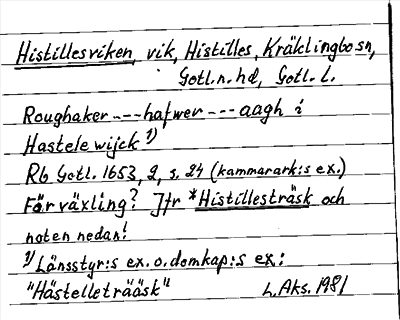 Histillesviken, vik, Histilles, Kräklingbo sn,
Gotl.n.hd, Gotl. l.
Roughaker --- hafwer --- aagh i
Hastele wijck 1)
Rb Gotl. 1653, 2, s. 24 (kammarark:s ex.)
Förväxling? Jfr *Histillesträsk och
noten nedan!
1) Länsstyr:s ex. o. domkap:s ex:
"Hästelleträäsk" L. Aks. 1981